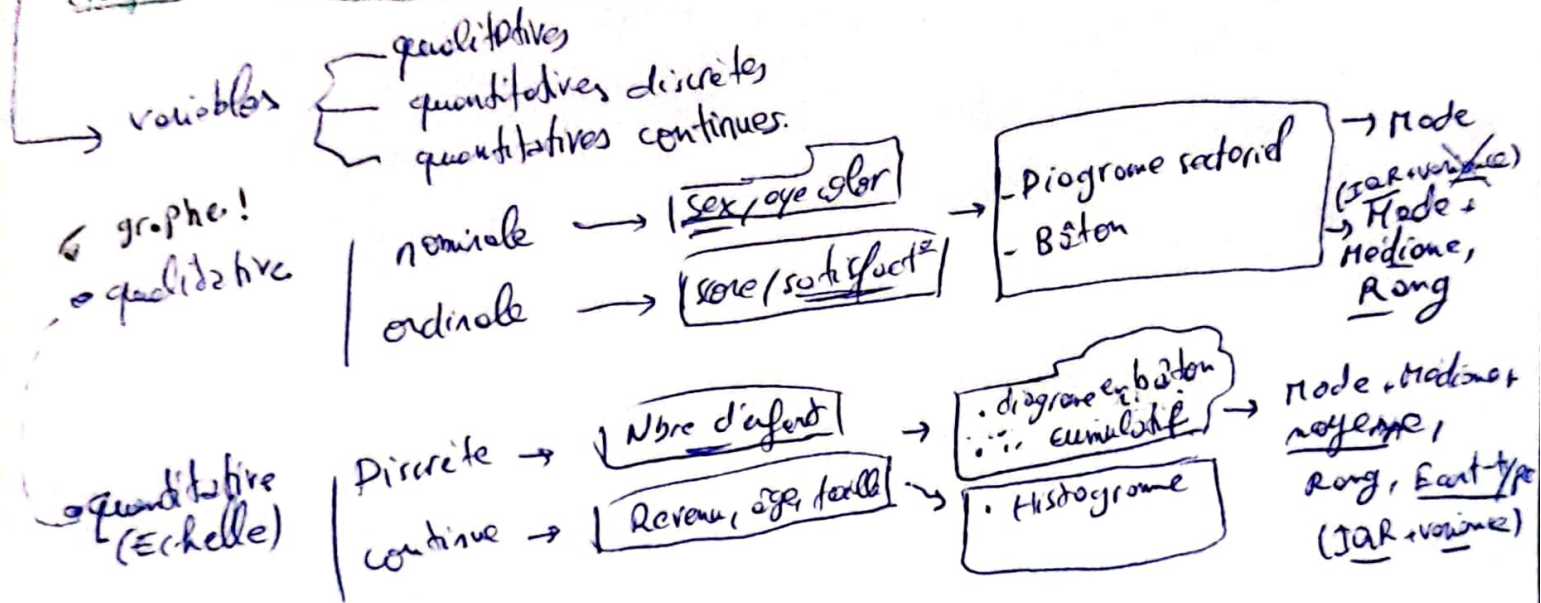 variables
qualitatives
quantitatives discrètes
quantitatives continues.
graphe!
qualitative
nominale → sex, eye color
ordinale → score/satisfact°
- Diagrame sectoriel
- Bâton
→ Mode
(IQR + variance)
→ Mode +
Médiane,
Rang
quantitative
(Echelle)
Discrète → Nbre d'enfant →
continue → Revenu, âge, taille
. diagrame en bâton
. " " cumulatif
. Histograme
→ Mode + Médiane +
moyenne,
Rang, Ecart-type
(IQR + variance)